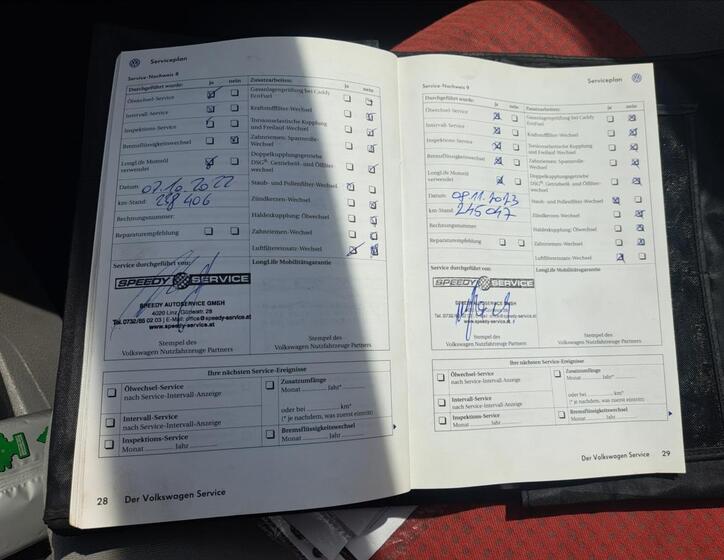 Serviceplan
Service-Nachweis 8
Durchgeführt wurde: ja nein
Ölwechsel-Service
Intervall-Service
Inspektions-Service
Bremsflüssigkeitswechsel
LongLife Motoröl verwendet
Datum 07.10.2022
km-Stand 238 406
Rechnungsnummer:
Reparaturempfehlung
Zusatzarbeiten: ja nein
Gasanlagenprüfung bei Caddy
EcoFuel
Kraftstofffilter-Wechsel
Torsionselastische Kupplung
und Freilauf-Wechsel
Zahnriemen: Spannrolle-
Wechsel
Doppelkupplungsgetriebe
DSG®: Getriebeöl- und Ölfilter-
wechsel
Staub- und Pollenfilter-Wechsel
Zündkerzen-Wechsel
Haldexkupplung: Ölwechsel
Zahnriemen-Wechsel
Luftfiltereinsatz-Wechsel
Service durchgeführt von:
SPEEDY SERVICE
SPEEDY AUTOSERVICE GMBH
4020 Linz
www.speedy-service.at
Stempel des
Volkswagen Nutzfahrzeuge Partners
LongLife Mobilitätsgarantie
Ihre nächsten Service-Ereignisse
Ölwechsel-Service
nach Service-Intervall-Anzeige
Intervall-Service
nach Service-Intervall-Anzeige
Inspektions-Service
Monat Jahr
Zusatzumfänge
Monat Jahr*
oder bei km*
(* je nachdem, was zuerst eintritt)
Bremsflüssigkeitswechsel
Monat Jahr
28 Der Volkswagen Service
Serviceplan
Service-Nachweis 9
Durchgeführt wurde: ja nein
Ölwechsel-Service
Intervall-Service
Inspektions-Service
Bremsflüssigkeitswechsel
LongLife Motoröl
verwendet
Datum: 08.11.2023
km-Stand 245047
Rechnungsnummer
Reparaturempfehlung
Zusatzarbeiten: ja nein
Gasanlagenprüfung bei Caddy
EcoFuel
Kraftstofffilter-Wechsel
Torsionselastische Kupplung
und Freilauf-Wechsel
Zahnriemen: Spannrolle-
Wechsel
Doppelkupplungsgetriebe
DSG®: Getriebeöl- und Ölfilter-
wechsel
Staub- und Pollenfilter-Wechsel
Zündkerzen-Wechsel
Haldexkupplung: Ölwechsel
Zahnriemen-Wechsel
Luftfiltereinsatz-Wechsel
Service durchgeführt von:
SPEEDY SERVICE
www.speedy-service.at
Stempel des
Volkswagen Nutzfahrzeuge Partners
LongLife Mobilitätsgarantie
Ihre nächsten Service-Ereignisse
Ölwechsel-Service
nach Service-Intervall-Anzeige
Intervall-Service
nach Service-Intervall-Anzeige
Inspektions-Service
Monat Jahr
Zusatzumfänge
Monat Jahr*
oder bei km*
(* je nachdem, was zuerst eintritt)
Bremsflüssigkeitswechsel
Monat Jahr
Der Volkswagen Service 29